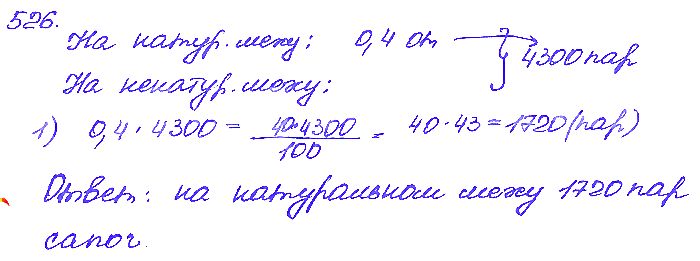 526.
На натур. меху: 0,4 от } 4300 пар
На ненатур. меху:
1) 0,4 · 4300 = 40·4300/100 = 40 · 43 = 1720 (пар)
Ответ: на натуральном меху 1720 пар
сапог.